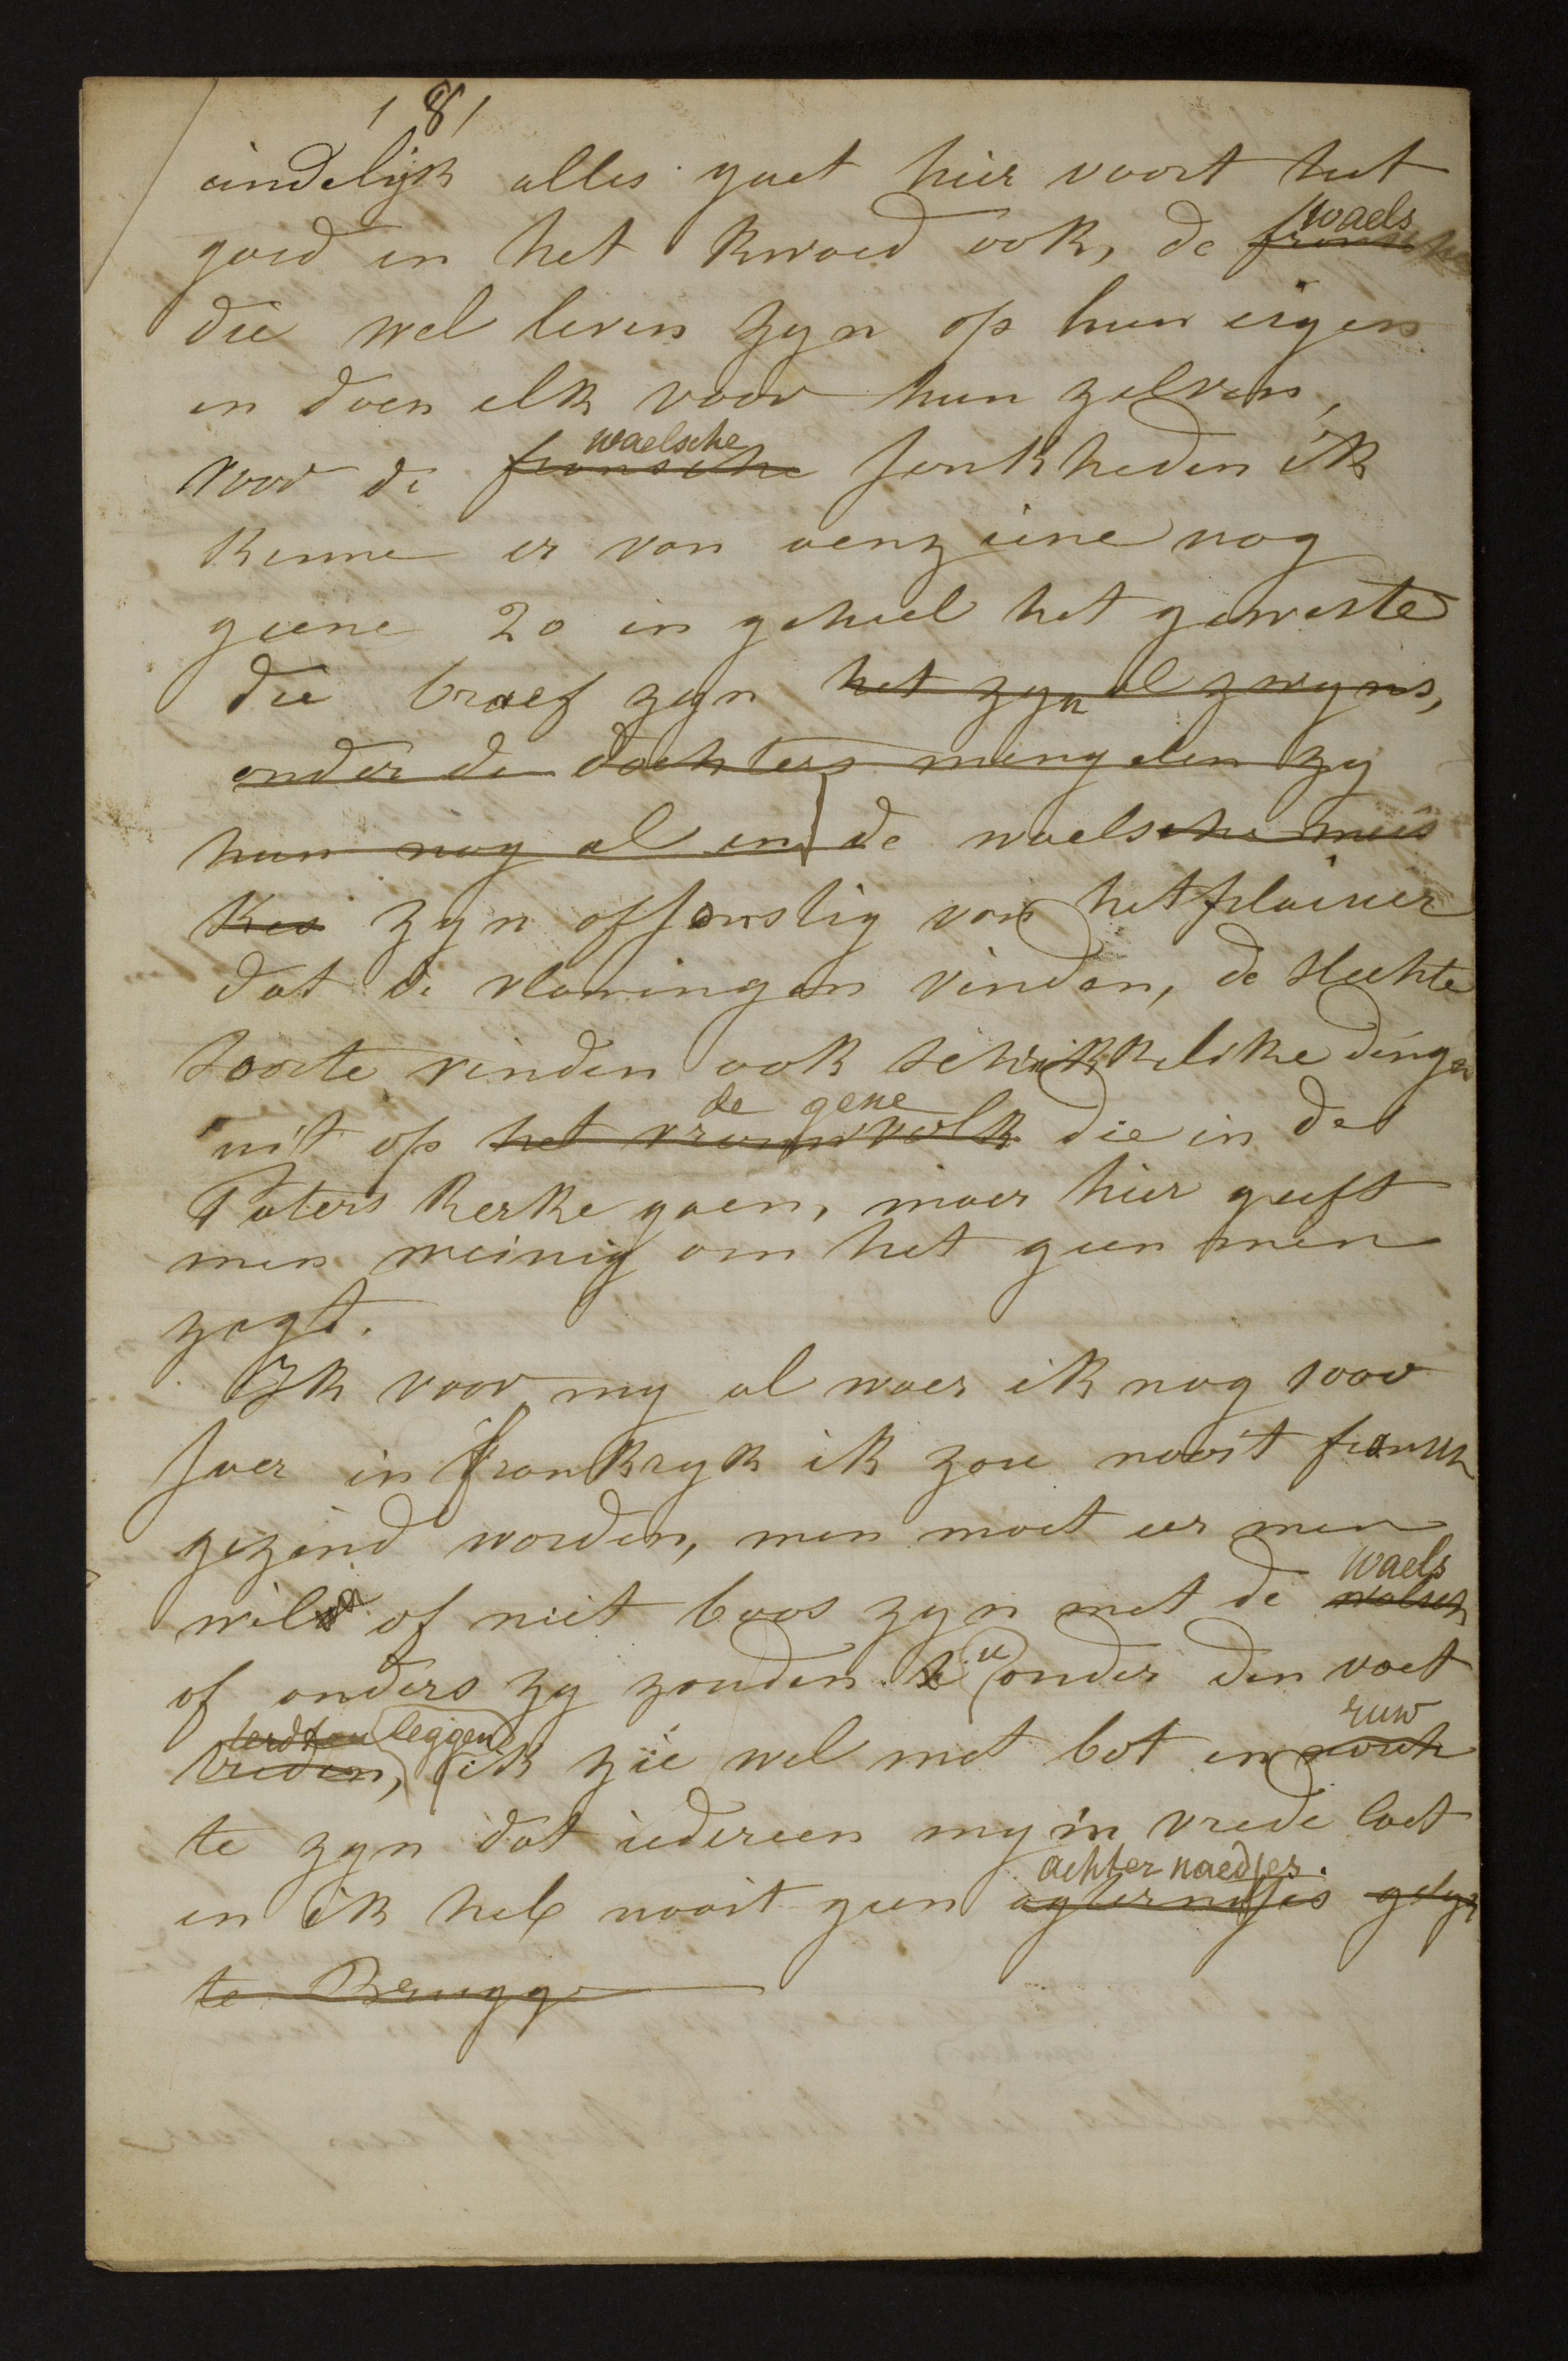 181
eindelijk alles gaet hier voort het
waels
goed en het kwaed ook, de fransche
die wel leven zyn op hun eigen
en doen elk voor hun zelven,
waelsche
voor de fransche Jonkheden ik
kenne er van aenziene nog
geene 20 in geheel het geweste
die braef zyn het zyn al zwyns,
onder de dochters mengelen zy
hun nog al en de waelsche meis
kes zyn afjonstig van het plaisier
dat de vlamingen vinden, de slechte
soorte vinden ook schrikkelike dingen
de gene
uit op het vrouwvolk die in de
Paters kerke gaen, maer hier geeft
men weinig om het geen men
zegt.
Ik voor my al waer ik nog 100
Jaer in frankryk ik zou nooit fransch
gezind worden, men moet eer men
waels
wil of niet boos zyn met de walsch
of anders zy zouden u onder den voet
terdten leggen ruw
treden, ik zie wel met bot en
te zyn dat iedereen my in vrede laet
achternaedjes.
en ik heb nooit geen
te Brugge